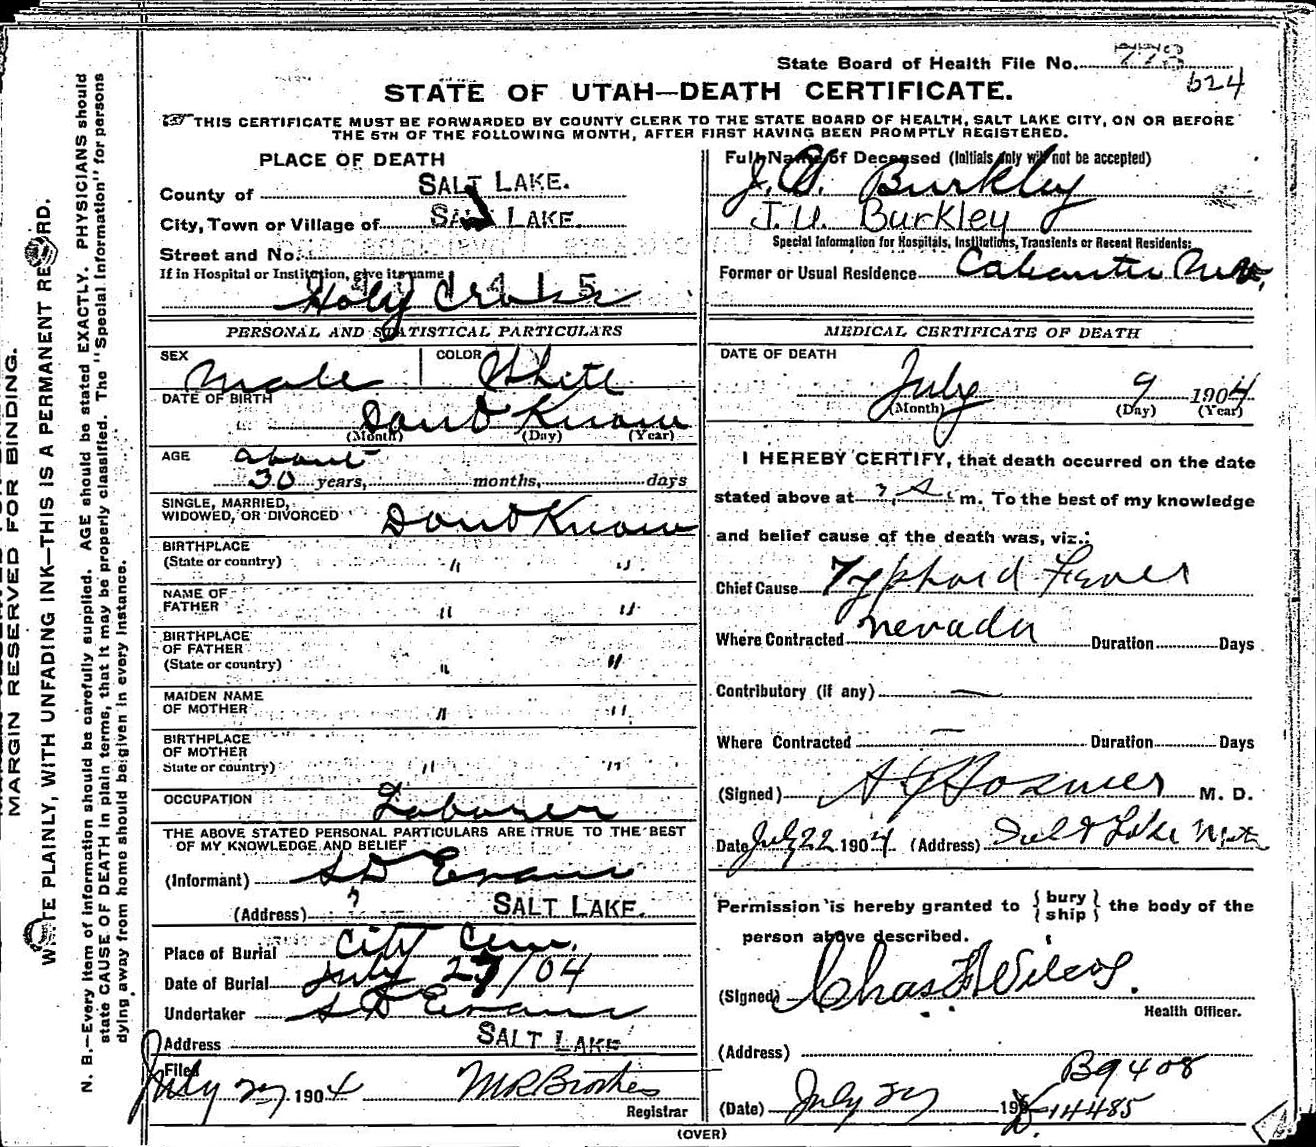 State Board of Health File No. 773
624
STATE OF UTAH—DEATH CERTIFICATE.
THIS CERTIFICATE MUST BE FORWARDED BY COUNTY CLERK TO THE STATE BOARD OF HEALTH, SALT LAKE CITY, ON OR BEFORE
THE 5TH OF THE FOLLOWING MONTH, AFTER FIRST HAVING BEEN PROMPTLY REGISTERED.
PLACE OF DEATH
County of SALT LAKE.
City, Town or Village of SALT LAKE.
Street and No.
If in Hospital or Institution, give its name
Holy Cross
Full Name of Deceased (Initials only will not be accepted)
J. U. Burkley
J. U. Burkley
Special Information for Hospitals, Institutions, Transients or Recent Residents:
Former or Usual Residence Nev.
PERSONAL AND STATISTICAL PARTICULARS
SEX Male
COLOR White
DATE OF BIRTH
Dont Know
(Month) (Day) (Year)
AGE about
30 years, months, days
SINGLE, MARRIED,
WIDOWED, OR DIVORCED Dont Know
BIRTHPLACE
(State or country) " "
NAME OF
FATHER " "
BIRTHPLACE
OF FATHER
(State or country) " "
MAIDEN NAME
OF MOTHER " "
BIRTHPLACE
OF MOTHER
State or country) " "
OCCUPATION Laborer
THE ABOVE STATED PERSONAL PARTICULARS ARE TRUE TO THE BEST
OF MY KNOWLEDGE AND BELIEF
(Informant) S D Evans
(Address) SALT LAKE.
Place of Burial City Cem.
Date of Burial July 27/04
Undertaker S D Evans
Address SALT LAKE
Filed
July 27 1904 M R Brothes
Registrar
MEDICAL CERTIFICATE OF DEATH
DATE OF DEATH
July 9 1904
(Month) (Day) (Year)
I HEREBY CERTIFY, that death occurred on the date
stated above at 7 A m. To the best of my knowledge
and belief cause of the death was, viz.:
Chief Cause Typhoid Fever
Where Contracted Nevada Duration Days
Contributory (if any) —
Where Contracted — Duration Days
(Signed) Hosmer M. D.
Date July 22 1904 (Address) Salt Lake
Permission is hereby granted to { bury
ship } the body of the
person above described.
(Signed) Chas F Wilcox.
Health Officer.
(Address)
B9408
(Date) July 27 190
D-14485
(OVER)
MARGIN RESERVED FOR BINDING.
WRITE PLAINLY, WITH UNFADING INK—THIS IS A PERMANENT RECORD.
N. B.—Every item of information should be carefully supplied. AGE should be stated EXACTLY. PHYSICIANS should
state CAUSE OF DEATH in plain terms, that it may be properly classified. The "Special Information" for persons
dying away from home should be given in every instance.